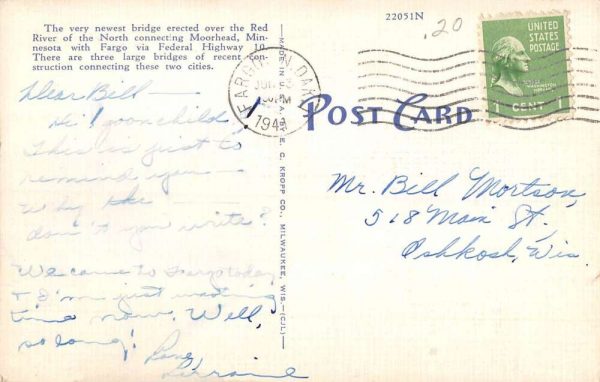 The very newest bridge erected over the Red
River of the North connecting Moorhead, Min-
nesota with Fargo via Federal Highway 10.
There are three large bridges of recent con-
struction connecting these two cities.
22051N
.20
UNITED
STATES
POSTAGE
1 CENT 1
FARGO N. DAK.
POST CARD
MADE IN U.S.A. BY E. C. KROPP CO., MILWAUKEE, WIS.—(C/L)—
Dear Bill—
Hi
This is just to
remind you—
Why the
don't you write?
We came to Fargo today
+ I'm just wasting
time now. Well,
so long!
Love,
Lorraine
Mr. Bill Mortson,
518 Main St,
Oshkosh, Wis.